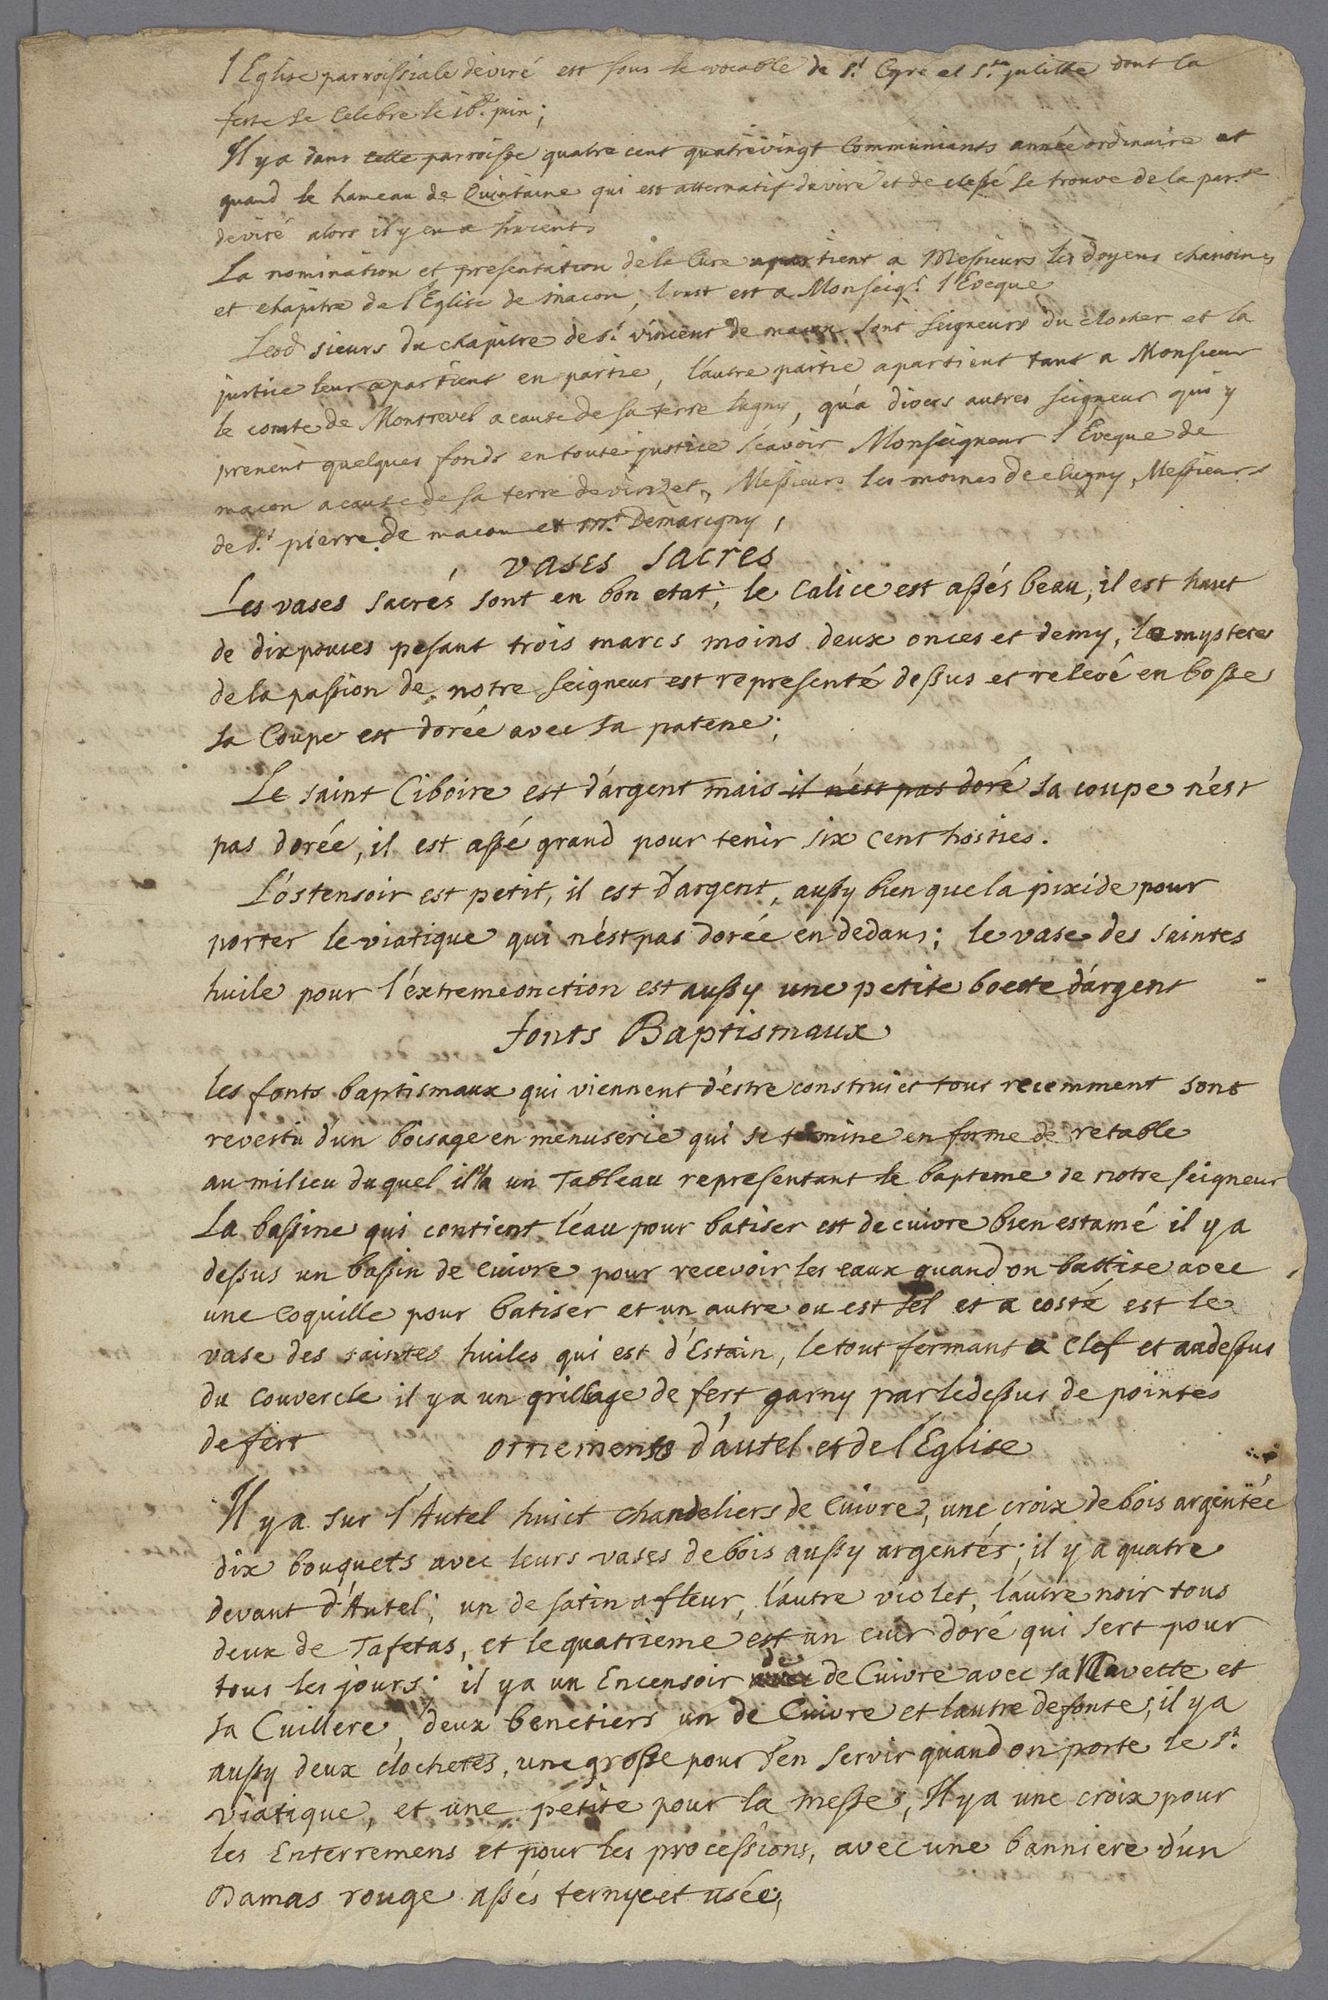 l'Eglise parroissiale deviré est sous le vocable de s.t Cyre et s.te julitte dont la
feste se Celebre le 16.e juin;
Il y a dans cette parroisse quatre cent quatrevingt Communiants année ordinaire et
quand le hameau de Quintaine qui est alternatif deviré et de clessé se trouve de la par.sse
deviré alors il y en a
La nomination et presentation de la Cure apartient a Messieurs les doyens chanoines
et chapitre de l'Eglise de macon, est a Monseig.r l'Eveque
sieurs du chapitre de s.t vincent de macon sont seigneurs du clocher et la
justice leur apartient en partie, l'autre partie apartient tant a Monsieur
le comte de Montrevel a cause de sa terre lugny, qu'a divers autres seigneur qui y
prenent quelques fonds en toute justice scavoir Monseigneur l'Eveque de
macon a cause de sa terre devirizet, Messieurs les moines de clugny, Messieurs
de s.t pierre de macon et mr. Demarigny;
vases sacres
Les vases sacrés sont en bon etat; le Calice est assés beau, il est haut
de dix pouces pesant trois marcs moins deux onces et demy, le mysteres
de la passion de notre seigneur est representé dessus et relevé en bosse
sa Coupe est dorée avec sa patene;
Le saint Ciboire est d'argent mais il n'est pas doré sa coupe n'est
pas dorée, il est assé grand pour tenir six cent hosties.
L'ostensoir est petit, il est d'argent, aussy bien que la pixide pour
porter le viatique qui n'est pas dorée en dedans; le vase des saintes
huile pour l'éxtremeonction est aussy une petite boette d'argent
fonts Baptismaux
les fonts baptismaux qui viennent d'éstre construict tout recemment sont
revestu d'un boisage en menuserie qui se termine en forme de retable
au milieu duquel il'a un Tableau representant le bapteme de notre seigneur
La bassine qui contient l'éau pour batiser est de cuivre bien estamé il y a
dessus un bassin de Cuivre pour recevoir les eaux quand on battise avec
une Coquille pour batiser et un autre ou est sel et a costé est le
vase des saintes huiles qui est d'Estain, le tout fermant a Clef et audessus
du couvercle il y a un grillage de fert garny par ledessus de pointes
de fert ornements d'autel et de l'Eglise
Il y a sur l'Autel huict chandeliers de Cuivre, une croix de bois argentée
dix bouquets avec leurs vases de bois aussy argentés; il y a quatre
devant d'Autel; un de satin a fleur, l'autre violet, l'autre noir tous
deux de Tafetas, et le quatrieme est un cuir doré qui sert pour
tous les jours; il y a un Encensoir de de Cuivre avec sa Navette et
sa Cuillere, deux benetiers un de Cuivre et l'autre de fonte; il y a
aussy deux clochetes, une grosse pour s'en servir quand on porte le s.t
viatique, et une petite pour la messe; Il y a une croix pour
les Enterremens et pour les processions, avec une banniere d'un
Damas rouge assés ternye et usée;